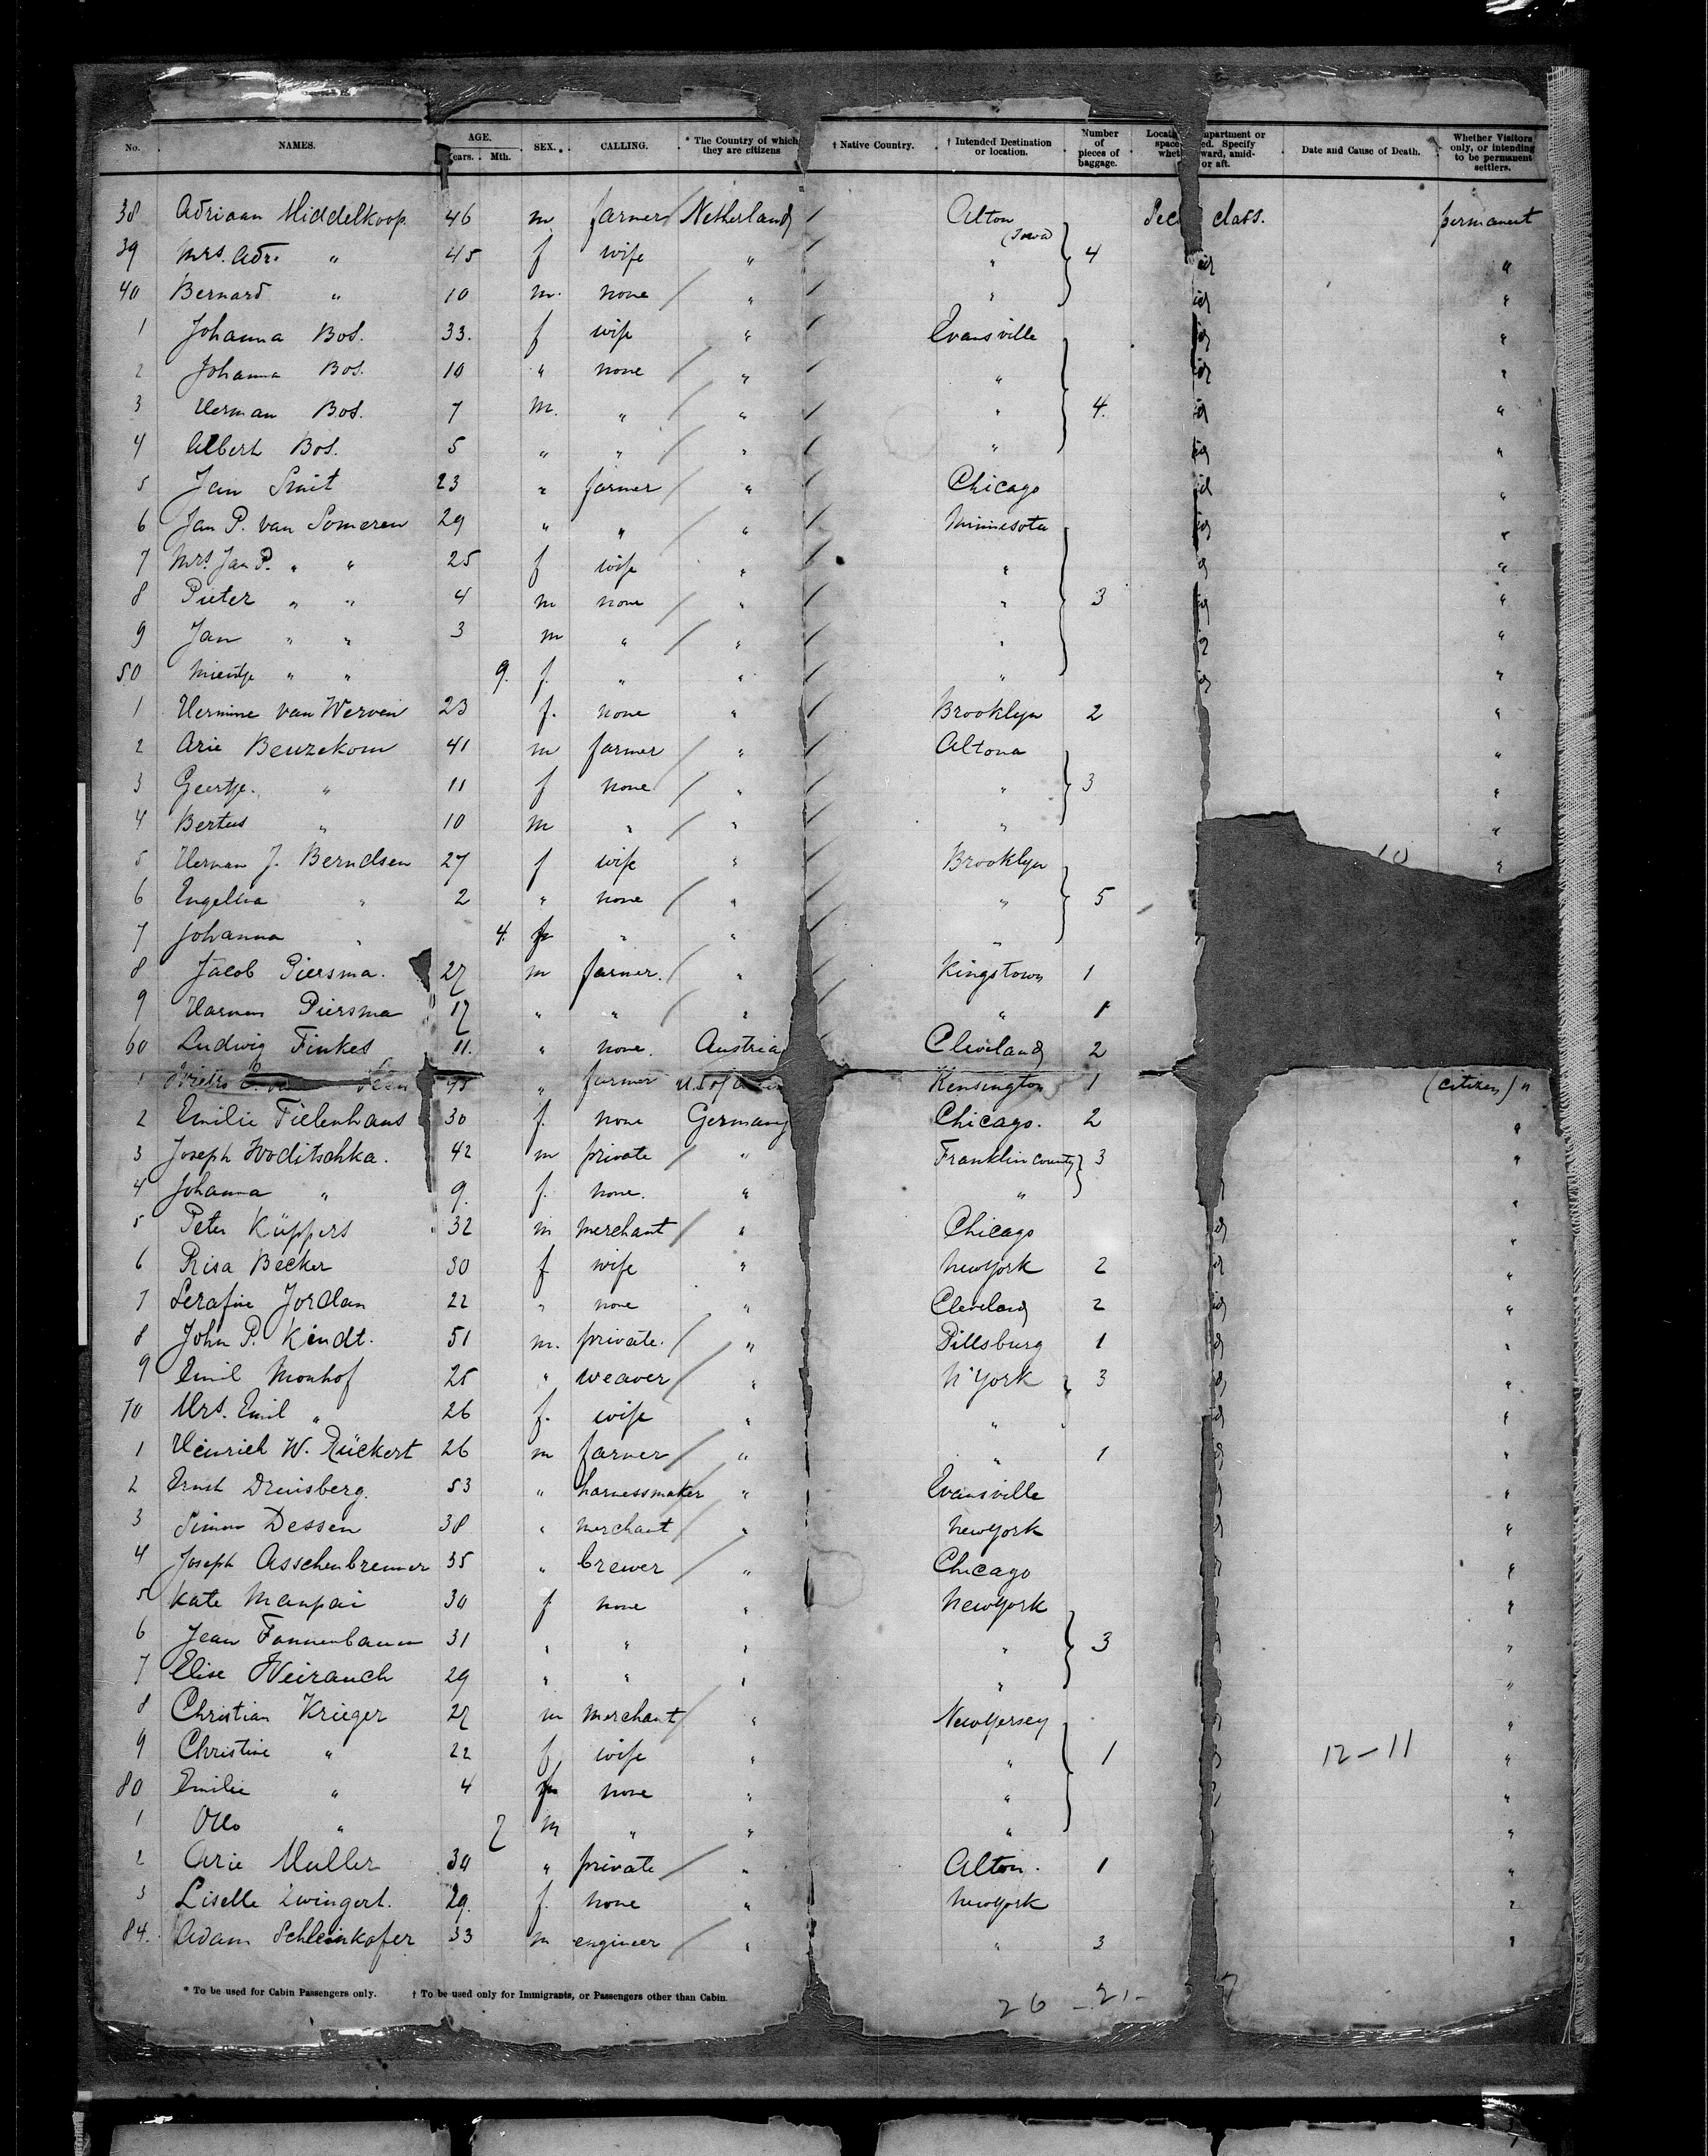 No. NAMES. AGE. Years. Mth. SEX. CALLING. * The Country of which they are citizens † Native Country. † Intended Destination or location. Number of pieces of baggage. Date and Cause of Death. Whether Visitors only, or intending to be permanent settlers.
38 Adriaan Middelkoop 46 m farmer Netherland Alton (Iowa) class. permanent
39 Mrs. Adr. " 45 f wife " " 4 "
40 Bernard " 10 m. none " " "
1 Johanna Bos. 33. f wife " Evansville "
2 Johanna Bos. 10 " none " " "
3 Herman Bos. 7 m. " " " 4. "
4 Albert Bos. 5 " " " " "
5 Jan Smit 23 " farmer " Chicago "
6 Jan P. van Someren 29 " " " Minnesota "
7 Mrs. Jan P. " " 25 f wife " " "
8 Pieter " " 4 m none " " 3 "
9 Jan " " 3 m " " " "
50 Mientje " " 9. f. " " " "
1 Hermine van Werven 23 f. none " Brooklyn 2 "
2 Arie Beuzekom 41 m farmer " Altona "
3 Geertje. " 11 f none " " 3 "
4 Bertus " 10 m " " " "
5 Herman J. Berndsen 27 f wife " Brooklyn "
6 Engelina " 2 " none " " 5
7 Johanna " 4. f " " "
8 Jacob Piersma. 27 m farmer. " Kingstown 1
9 Harmen Piersma 17 " " " " 1
60 Ludwig Finkes 11. " none. Austria Cleveland 2
1 45 " farmer U.S. of Kensington 1 (citizen) "
2 Emilie Fiebenhaus 30 f. none Germany Chicago. 2 "
3 Joseph Woditschka. 42 m private " Franklin County 3 "
4 Johanna " 9. f. none. " " "
5 Peter Küppers 32 m merchant " Chicago "
6 Risa Becker 30 f wife " New York 2 "
7 Serafine Jordan 22 " none " Cleveland 2 "
8 John P. Kindt. 51 m. private. " Pittsburg 1 "
9 Emil Monhof 25 " weaver " N'York 3 "
70 Mrs. Emil " 26 f. wife " " "
1 Heinrich W. Rückert 26 m farmer " " 1 "
2 Ernst Dreisberg. 53 " harnessmaker " Evansville "
3 Simon Dessen 38 " merchant " New York "
4 Joseph Asschenbrenner 35 " brewer " Chicago "
5 Kate Manpai 30 f none " New York "
6 Jean Tannenbaum 31 " " " " 3 "
7 Elise Weirauch 29 " " " " "
8 Christian Krieger 27 m merchant " New Yersey "
9 Christine " 22 f wife " " 1 12-11 "
80 Emilie " 4 f none " " "
1 Otto " 7 m " " " "
2 Arie Muller 34 " private " Alton. 1 "
3 Liselle Zwingert. 29. f. none " New York "
84. Adam Schleinkofer 33 m engineer " " 3 "
* To be used for Cabin Passengers only. † To be used only for Immigrants, or Passengers other than Cabin.
26 - 21 -